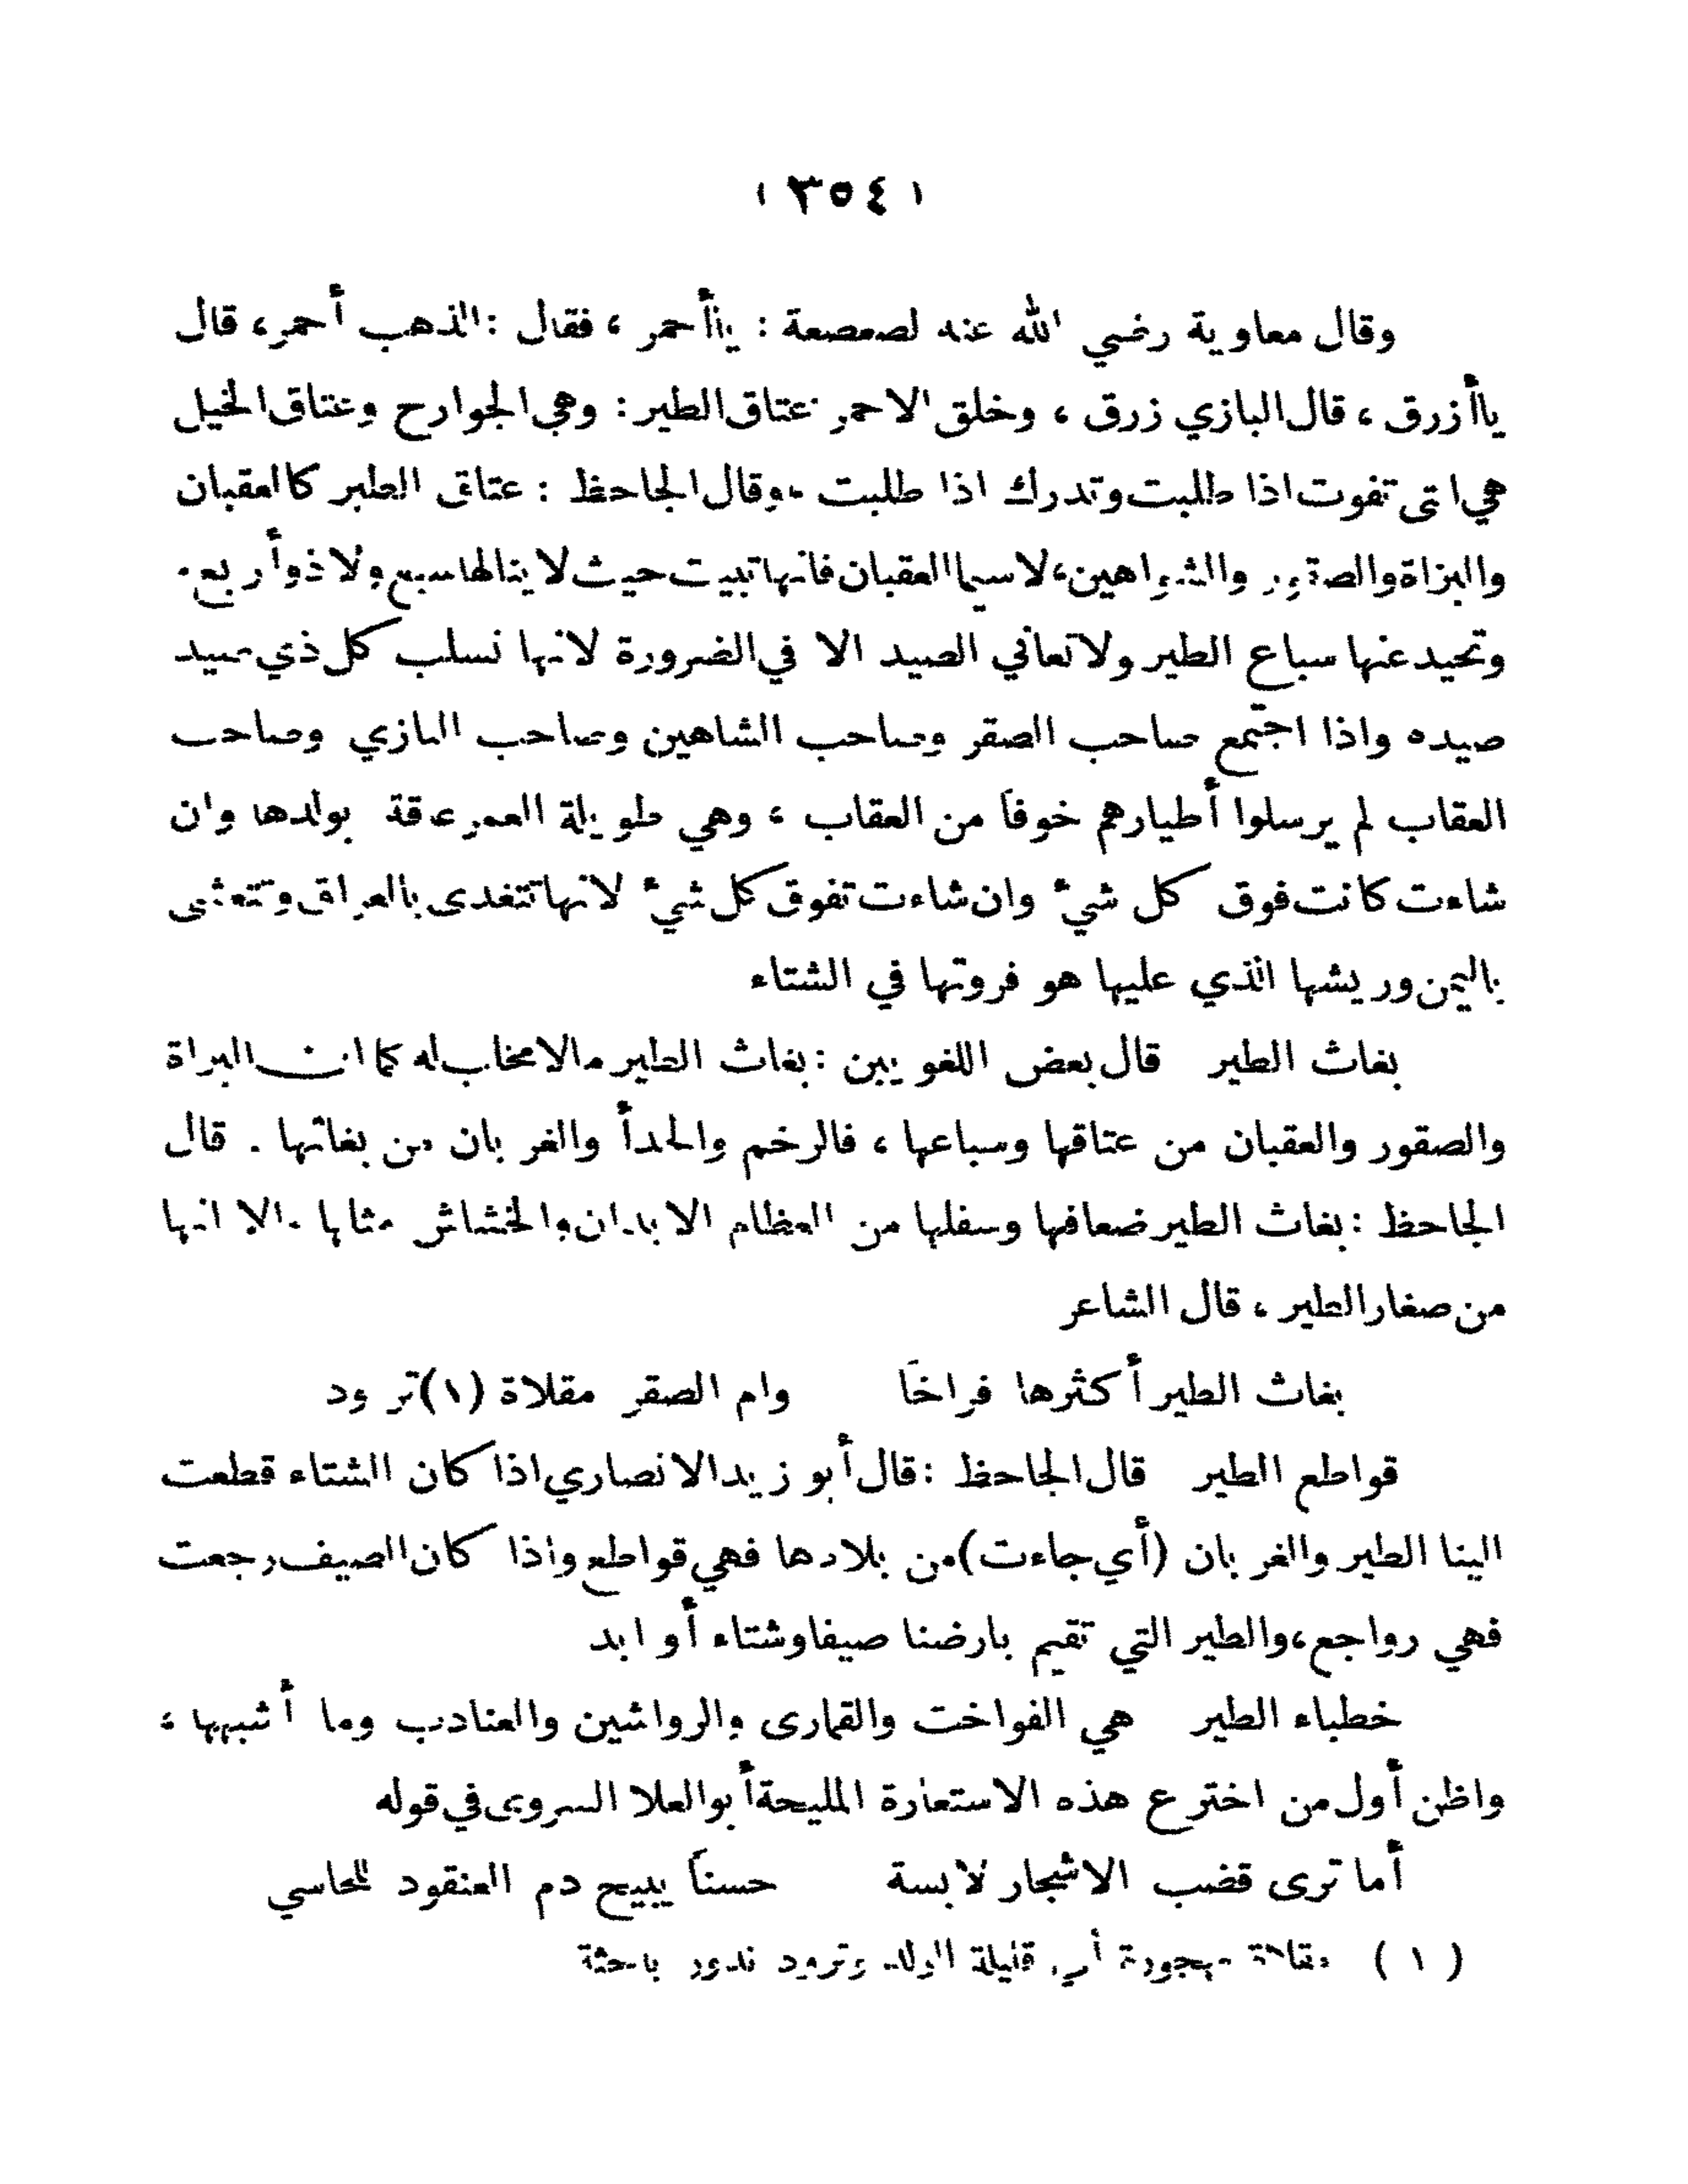 ( ٣٥٤ )
وقال معاوية رضي الله عنه لصعصعة : ياأحمر ، فقال : الذهب أحمر، قال
ياأزرق ، قال البازي زرق ، وخلق الاحمر عتاق الطير : وهي الجوارح وعتاق الخيل
هي التى تفوت اذا طلبت وتدرك اذا طلبت . وقال الجاحظ : عتاق الطير كالعقبان
والبزاة والصقور والشواهين، لاسيما العقبان فانها تبيت حيث لا ينالها سبع ولا ذوأربع .
وتحيد عنها سباع الطير ولا تعاني الصيد الا في الضرورة لانها تسلب كل ذي صيد
صيده واذا اجتمع صاحب الصقر وصاحب الشاهين وصاحب البازي وصاحب
العقاب لم يرسلوا أطيارهم خوفاً من العقاب ، وهي طويلة العمر عاقة بولدها وان
شاءت كانت فوق كل شيء وان شاءت تفوق كل شيء لانها تتغدى بالعراق وتتعشى
باليمن وريشها الذي عليها هو فروتها في الشتاء
بغاث الطير قال بعض اللغويين : بغاث الطير مالا مخاب له كما ان البراة
والصقور والعقبان من عتاقها وسباعها ، فالرخم والحدأ والغربان من بغاثها . قال
الجاحظ : بغاث الطير ضعافها وسفلها من العظام الابدان والخشاش مثلها الا انها
من صغار الطير ، قال الشاعر
بغاث الطير أكثرها فراخاً وام الصقر مقلاة (١) ترود
قواطع الطير قال الجاحظ : قال أبو زيد الانصاري اذا كان الشتاء قطعت
الينا الطير والغربان (أي جاءت) من بلادها فهي قواطع واذا كان الصيف رجعت
فهي رواجع، والطير التي تقيم بارضنا صيفا وشتاء أوابد
خطباء الطير هي الفواخت والقمارى والرواشين والعنادب وما أشبهها ،
واظن أول من اخترع هذه الاستعارة المليحة أبو العلا السروى في قوله
أما ترى قضب الاشجار لابسة حسناً يبيح دم العنقود للحاسي
( ١ ) مقلاة مهجورة أي قليلة الولد وترود تدور باحثة